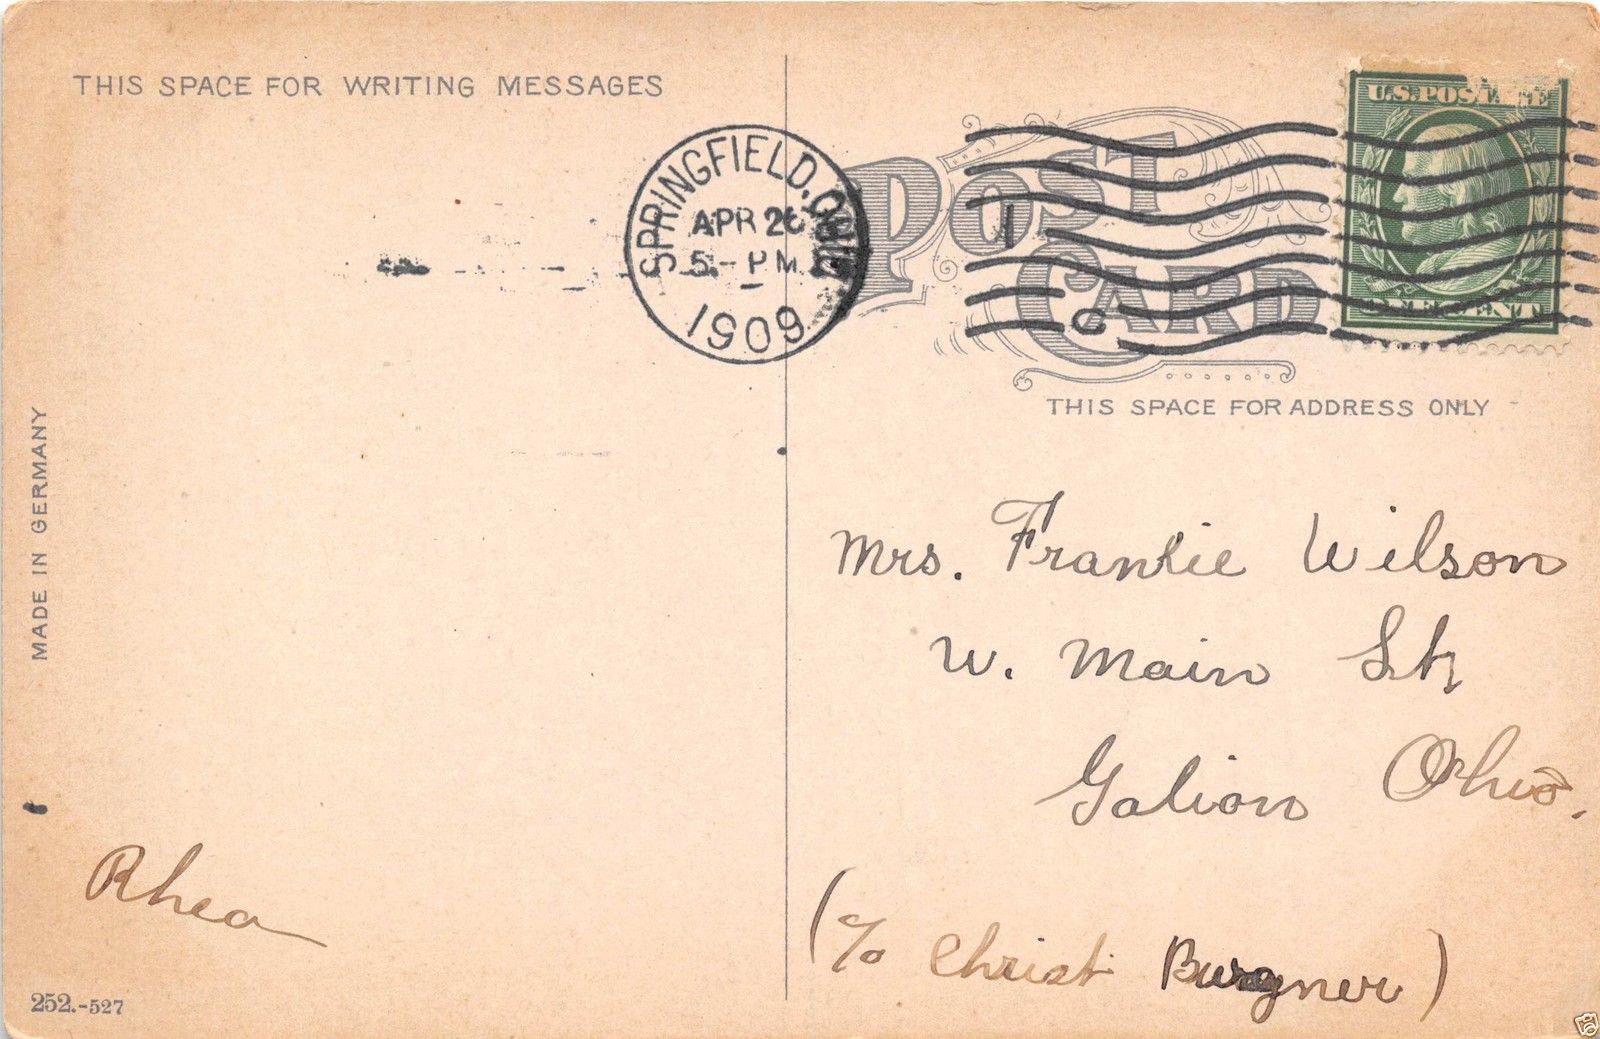 THIS SPACE FOR WRITING MESSAGES
U.S. POSTAGE
SPRINGFIELD, OHIO
APR 26
5 - PM
1909
1
C
POST CARD
ONE CENT
THIS SPACE FOR ADDRESS ONLY
MADE IN GERMANY
Mrs. Frankie Wilson
W. Main St,
Galion Ohio.
Rhea
(c/o Christ Burgner)
252.-527